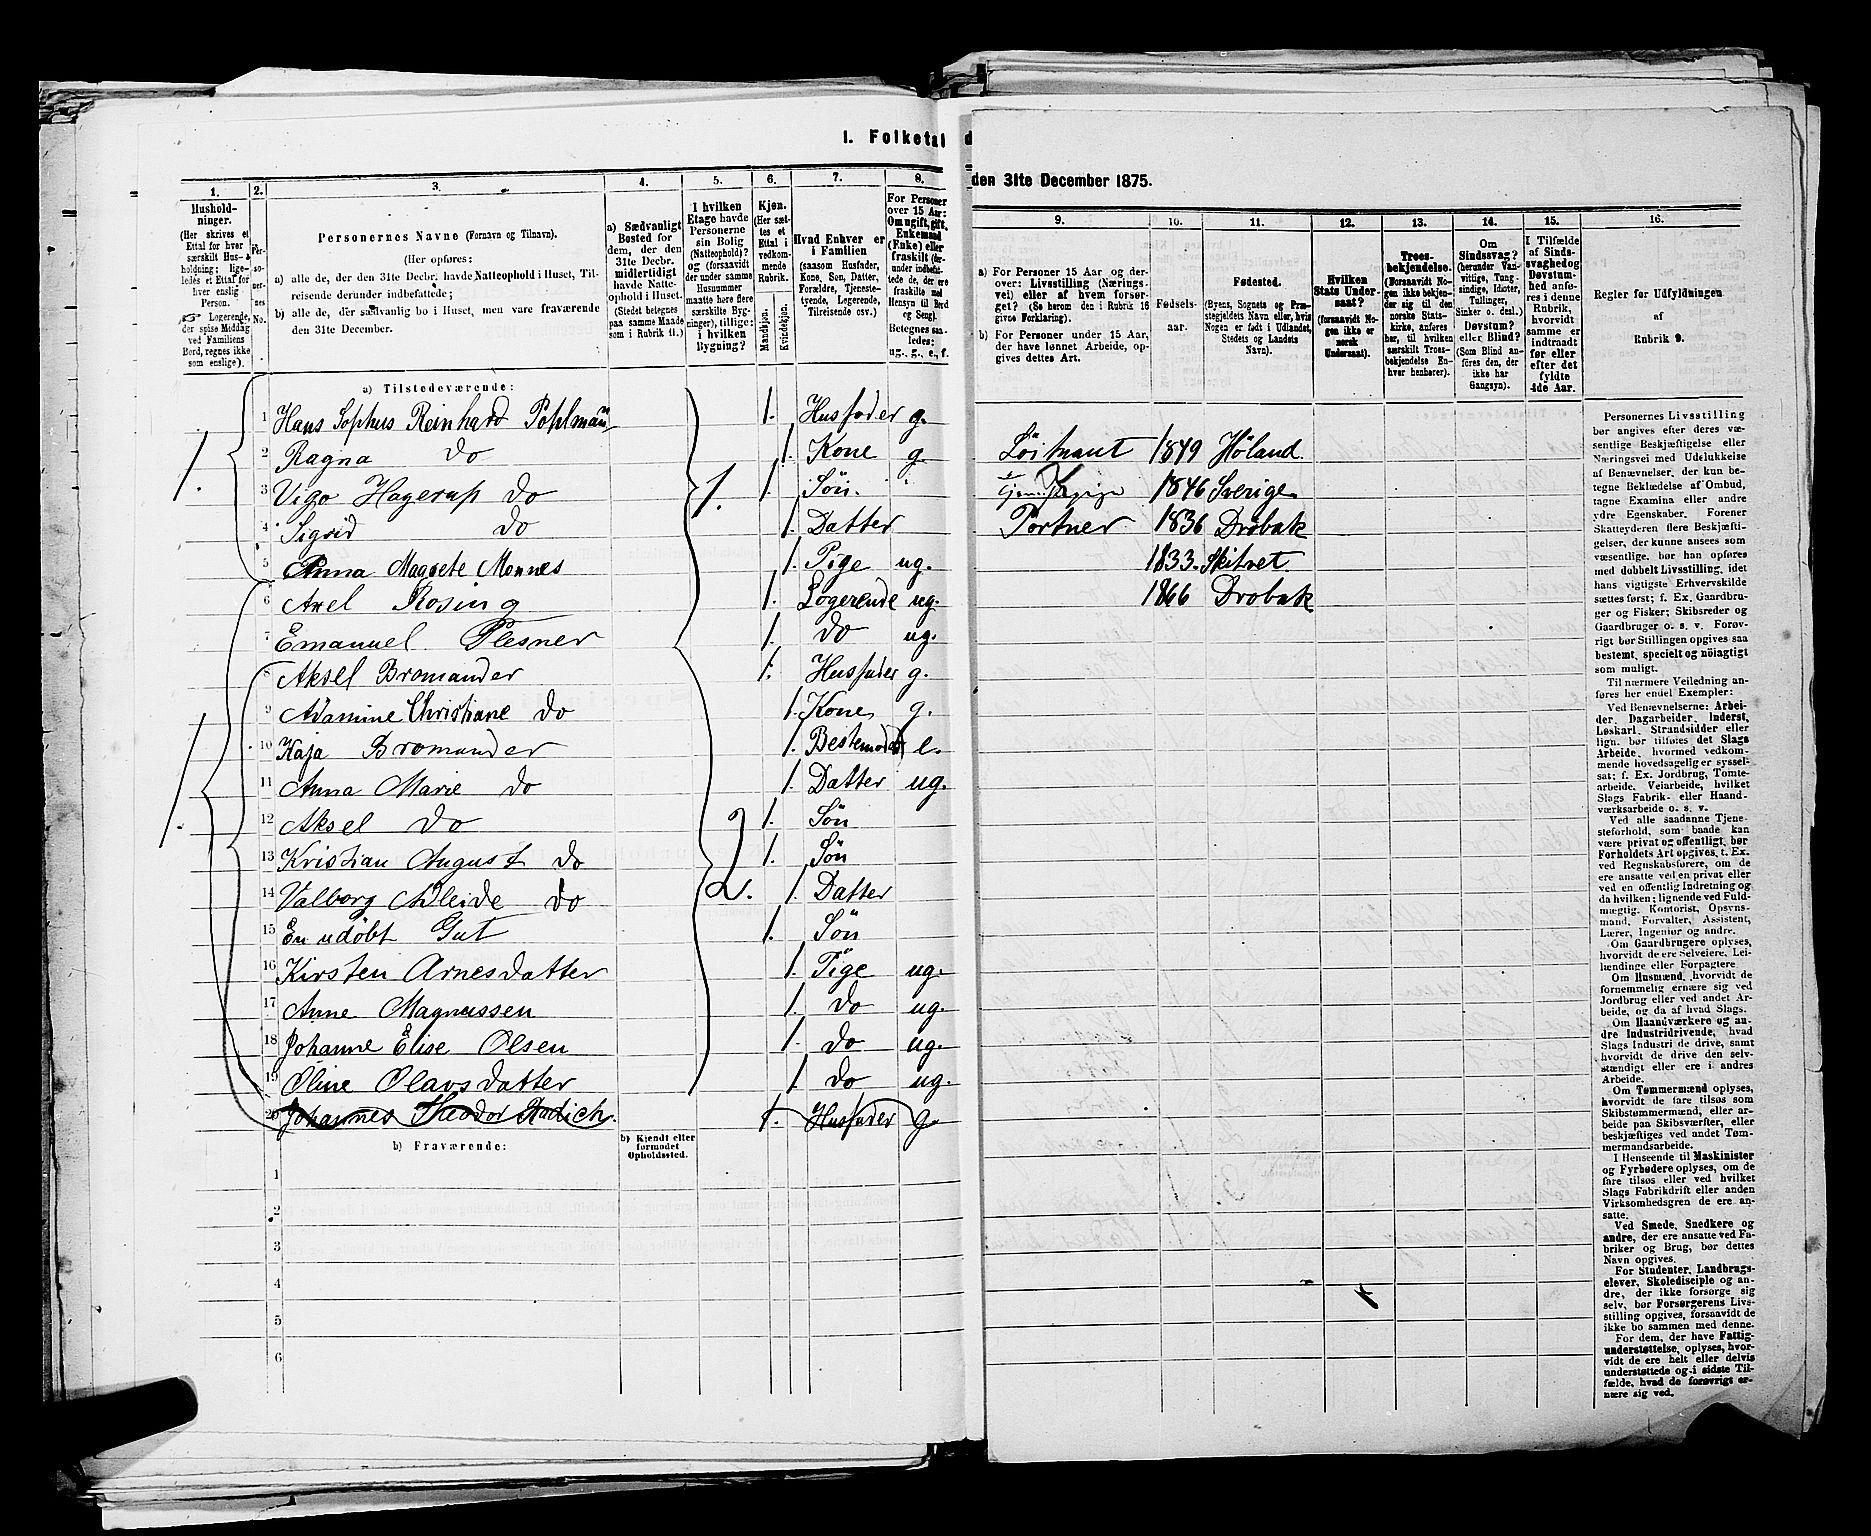 I. Folketal d
den 31te December 1875.
1.
Husholdninger.
(Her skrives et Ettal for hver særskilt Husholdning; ligeledes et Ettal for hver enslig Person.
Logerende, der spise Middag ved Familiens Bord, regnes ikke som enslige).
2.
Personernes No.
3.
Personernes Navne (Fornavn og Tilnavn).
(Her opføres:
a) alle de, der den 31te Decbr. havde Natteophold i Huset, Tilreisende derunder indbefattede;
b) alle de, der sædvanlig bo i Huset, men vare fraværende den 31te December.
4.
a) Sædvanligt Bosted for dem, der den 31te Decbr. midlertidigt havde Natteophold i Huset.
(Stedet betegnes paa samme Maade som i Rubrik 11.)
5.
I hvilken Etage havde Personerne sin Bolig (Natteophold)? og (forsaavidt der under samme Husnummer maatte høre flere særskilte Bygninger), tillige: i hvilken Bygning?
6.
Kjøn.
(Her sættes et Ettal i vedkommende Rubrik.
Mandkjøn.
Kvindekjøn.
7.
Hvad Enhver er i Familien
(saasom Husfader, Kone, Søn, Datter, Forældre, Tjenestetyende, Logerende, Tilreisende osv.)
8.
For Personer over 15 Aar: Om ugift, gift, Enkemand (Enke) eller fraskilt
Betegnes saaledes: ug., g., e., f.
9.
a) For Personer 15 Aar og derover: Livsstilling (Næringsvei) eller af hvem forsørget? (Se herom den i Rubrik 16 givne Forklaring).
b) For Personer under 15 Aar, der have lønnet Arbeide, opgives dettes Art.
10.
Fødselsaar.
11.
Fødested.
(Byens, Sognets og Præstegjeldets Navn eller, hvis Nogen er født i Udlandet, Stedets og Landets Navn).
12.
Hvilken Stats Undersaat?
(forsaavidt Nogen ikke er norsk Undersaat).
13.
Troesbekjendelse.
(Forsaavidt Nogen ikke bekjender sig til den norske Statskirke, anføres her, til hvilken særskilt Troesbekjendelse Enhver henhører).
14.
Om Sindssvag? (herunder Vanvittige, Tungsindige, Idioter, Tullinger, Sinker o. desl.) Døvstum? eller Blind?
(Som Blind anføres den, der ikke har Gangsyn).
15.
I Tilfælde af Sindssvaghed og Døvstumhed anføres i denne Rubrik, hvorvidt samme er indtraadt før eller efter det fyldte 4de Aar.
16.
Regler for Udfyldningen af Rubrik 9.
a) Tilstedeværende:
1 Hans Sophus Reinhard Pohlman 1. Husfader g.
2 Ragna Do 1. Kone g. Løitnant 1849 Høland.
3 Vigo Hagerup Do 1. Søn. 1846 Sverige
4 Sigrid Do 1. Datter Portner 1836 Drøbak
5 Anna Magrete Monnes 1. Pige ug. 1833. Skitvet
6 Axel Rosing 1. Logerende ug. 1866 Drøbak
7 Emanuel Plesner 1. Do ug.
8 Aksel Bromander 1. Husfader g.
9 Adamine Christiane Do 1. Kone g.
10 Kaja Bromander 1. Bestemoder e.
11 Anna Marie Do 1. Datter ug.
12 Aksel Do 1. Søn
13 Kristian August Do 1. Søn
14 Valborg Adleide Do 2. 1. Datter
15 En udøbt Gut 1. Søn
16 Kirsten Arnesdatter 1. Pige ug.
17 Anne Magnussen 1. Do ug.
18 Johanne Elise Olsen 1. Do ug.
19 Oline Olavsdatter 1. Do ug.
20 Johannes Theodor Radich. 1. Husfader g.
b) Fraværende:
b) Kjendt eller formodet Opholdssted.
1
2
3
4
5
6
Personernes Livsstilling
bør angives efter deres væ-
sentlige Beskjæftigelse eller
Næringsvei med Udelukkelse
af Benævnelser, der kun be-
tegne Beklædelse af Ombud,
tagne Examina eller andre
ydre Egenskaber. Forener
Skatteyderen flere Beskjæfti-
gelser, der kunne ansees som
væsentlige, bør han opføres
med dobbelt Livsstilling, idet
hans vigtigste Erhvervskilde
sættes først; f. Ex. Gaardbru-
ger og Fisker; Skibsreder og
Gaardbruger o. s. v. Forøv-
rigt bør Stillingen opgives saa
bestemt, specielt og nöiagtigt
som muligt.
Til nærmere Veiledning an-
føres her endel Exempler:
Ved Benævnelserne: Arbei-
der, Dagarbeider, Inderst,
Løskarl, Strandsidder eller
lign. bør tilføies det Slags
Arbeide, hvormed vedkom-
mende hovedsagelig er syssel-
sat; f. Ex. Jordbrug, Tomte-
arbeide, Veiarbeide, hvilket
Slags Fabrik- eller Haand-
værksarbeide o. s. v.
Ved alle saadanne Tjene-
steforhold, som baade kan
være privat og offentligt, bør
Forholdets Art opgives, t. Ex.
ved Regnskabsførere, om de
ere ansatte ved en privat eller
ved en offentlig Indretning og
da hvilken; lignende ved Fuld-
mægtig, Kontorist, Opsyns-
mand, Forvalter, Assistent,
Lærer, Ingeniør og andre.
Om Gaardbrugere oplyses,
hvorvidt de ere Selveiere, Lei-
lændinge eller Forpagtere.
Om Husmænd, hvorvidt de
fornemmelig ernære sig ved
Jordbrug eller ved andet Ar-
beide, og da af hvad Slags.
Om Haandværkere og an-
dre Industridrivende, hvad
Slags Industri de drive, samt
hvorvidt de drive den selv-
stændigt eller ere i andres
Arbeide.
Om Tømmermænd oplyses,
hvorvidt de fare tilsøs som
Skibstømmermænd, eller ar-
beide paa Skibsværfter, eller
beskjæftiges ved andet Tøm-
mermandsarbeide.
I Henseende til Maskinister
og Fyrbødere oplyses, om de
fare tilsøs eller ved hvilket
Slags Fabrikdrift eller anden
Virksomhedsgren de ere an-
satte.
Ved Smede, Snedkere og
andre, der ere ansatte ved Fa-
briker og Brug, bør dettes
Navn opgives.
For Studenter, Landbrugs-
elever, Skoledisciple og an-
dre, der ikke forsørge sig
selv, bør Forsørgerens Livs-
stilling opgives, forsaavidt de
ikke bo sammen med denne.
For dem, der have Fattig-
understøttelse, oplyses, hvor-
vidt de ere helt eller delvis
understøttede og i sidste Til-
fælde, hvad de forøvrigt er-
nære sig ved.